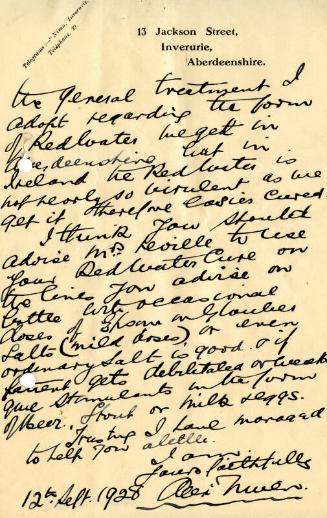 Telephone 
13 Jackson Street,
Inverurie,
Aberdeenshire.
the general treatment I
adopt regarding the form
of Redwater we get in
Aberdeenshire but in
Ireland the Redwater is
not nearly so virulent as we
get it therefore easier cured.
I think you should
advise Mr Neville to use
your Redwater Cure on
the lines you advise on
bottle with occasional
doses of Epsom or Glauber
salts (mild doses) or even
ordinary salt is good. & if
patient gets debilitated or weak
give stimulants in the form
of beer, stout or milk & eggs.
Trusting I have managed
to help you a little.
I am
Yours Faithfully
12th Sept. 1928